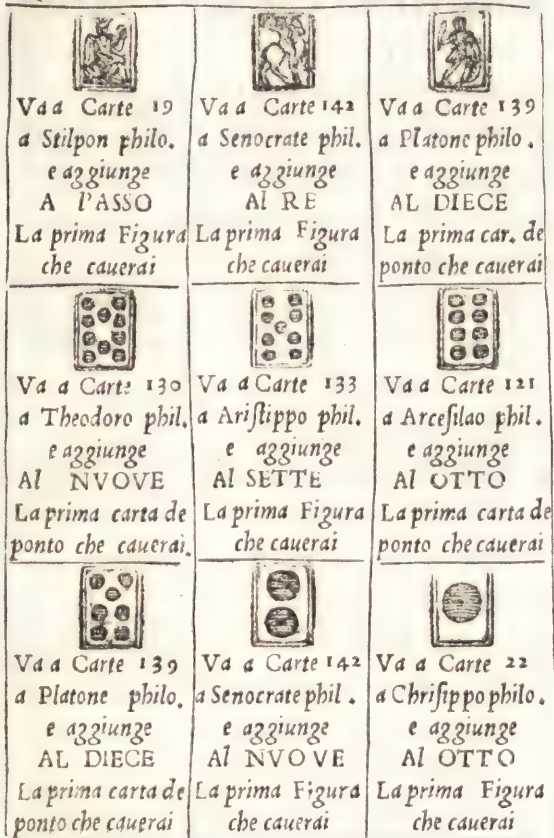 Va a Carte 19
a Stilpon philo.
e aggiunge
A l'ASSO
La prima Figura
che cauerai
Va a Carte 142
a Senocrate phil.
e aggiunge
Al RE
La prima Figura
che cauerai
Va a Carte 139
a Platone philo.
e aggiunge
AL DIECE
La prima car. de
ponto che cauerai
Va a Carte 130
a Theodoro phil.
e aggiunge
Al NVOVE
La prima carta de
ponto che cauerai.
Va a Carte 133
a Ariſtippo phil.
e aggiunge
Al SETTE
La prima Figura
che cauerai
Va a Carte 121
a Arceſilao phil.
e aggiunge
Al OTTO
La prima carta de
ponto che cauerai
Va a Carte 139
a Platone philo.
e aggiunge
AL DIECE
La prima carta de
ponto che cauerai
Va a Carte 142
a Senocrate phil.
e aggiunge
Al NVOVE
La prima Figura
che cauerai
Va a Carte 22
a Chriſippo philo.
e aggiunge
Al OTTO
La prima Figura
che cauerai